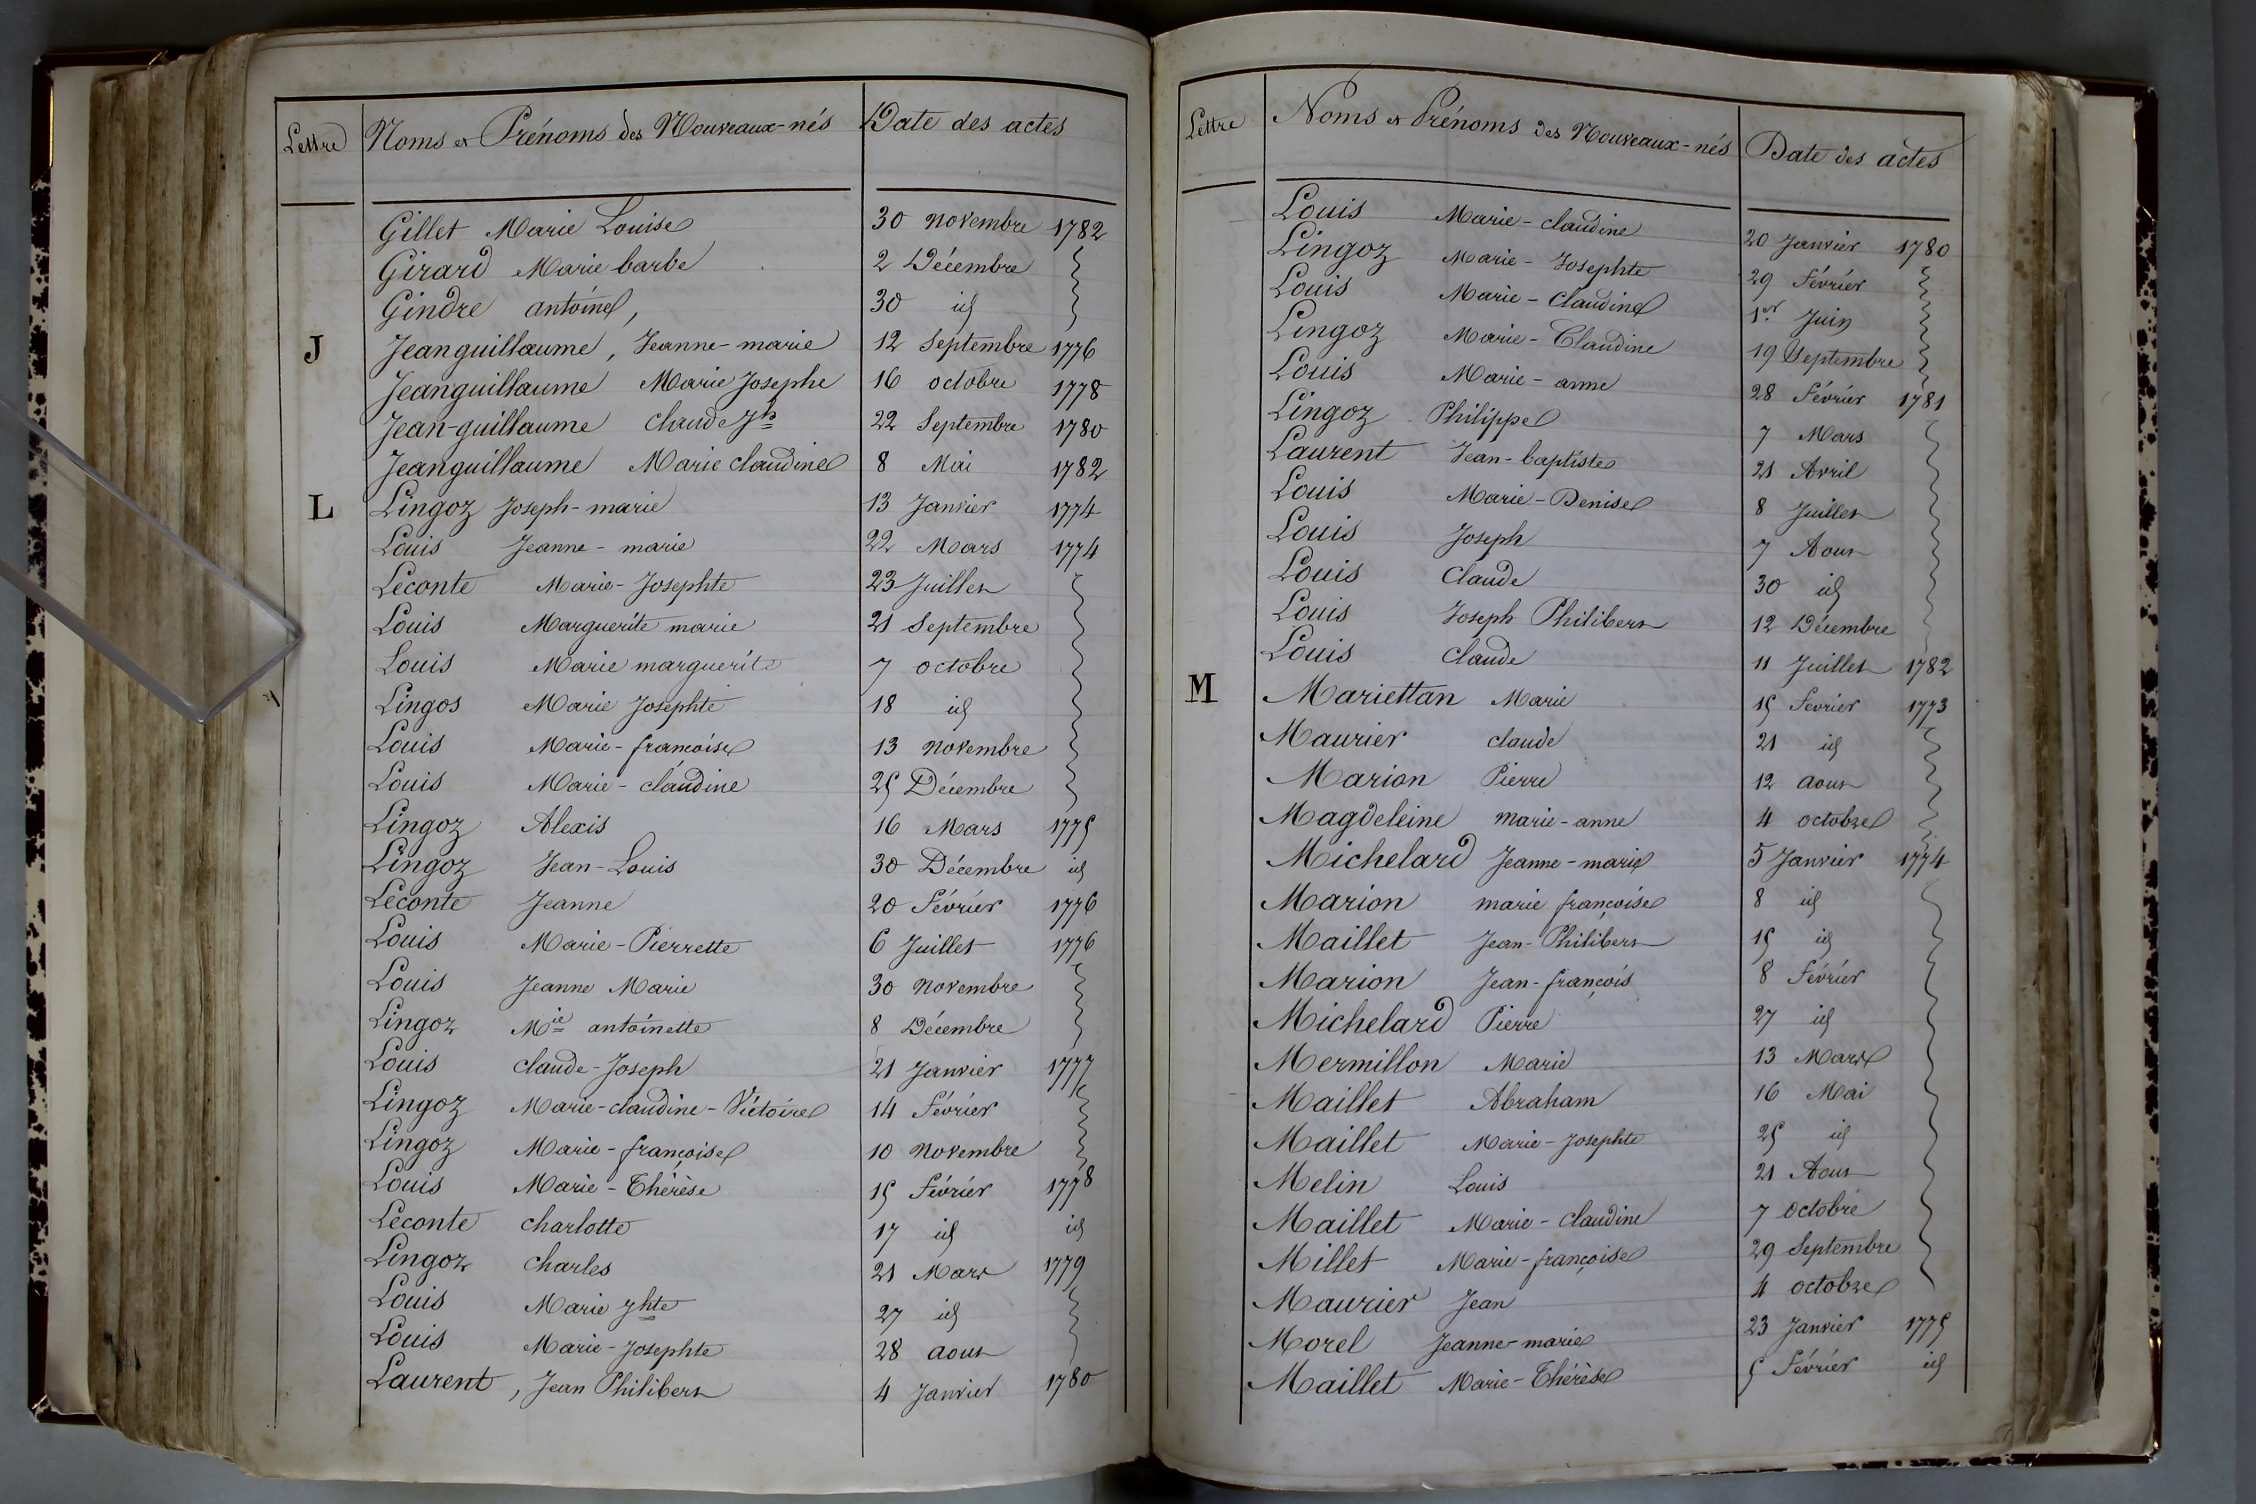 Lettre Noms et Prénoms des Nouveaux-nés Date des actes
Gillet Marie Louise 30 Novembre 1782
Girard Marie barbe 2 Décembre
Gindre antoine, 30 id
J Jeanguillaume, Jeanne-marie 12 Septembre 1776
Jeanguillaume Marie Josephe 16 octobre 1778
Jean-guillaume Claude Jh 22 Septembre 1780
Jeanguillaume Marie claudine 8 Mai 1782
L Lingoz Joseph-marie 13 Janvier 1774
Louis Jeanne-marie 22 Mars 1774
Leconte Marie-Josephte 23 Juillet
Louis Marguerite marie 21 Septembre
Louis Marie marguerite 7 octobre
Lingos Marie Josephte 18 id
Louis Marie-francoise 13 Novembre
Louis Marie-claudine 25 Décembre
Lingoz Alexis 16 Mars 1775
Lingoz Jean-Louis 30 Décembre id
Leconte Jeanne 20 Février 1776
Louis Marie-Pierrette 6 Juillet 1776
Louis Jeanne Marie 30 Novembre
Lingoz Mie antoinette 8 Décembre
Louis claude-Joseph 21 Janvier 1777
Lingoz Marie-claudine-Victoire 14 Février
Lingoz Marie-françoise 10 Novembre
Louis Marie-Thérèse 15 Février 1778
Leconte charlotte 17 id id
Lingoz charles 21 Mars 1779
Louis Marie Jhte 27 id
Louis Marie-Josephte 28 aout
Laurent, Jean Philibert 4 Janvier 1780
Lettre Noms et Prénoms des Nouveaux-nés Date des actes
Louis Marie-claudine 20 Janvier 1780
Lingoz Marie-Josephte 29 Février
Louis Marie-Claudine 1er Juin
Lingoz Marie-Claudine 19 Septembre
Louis Marie-anne 28 Février 1781
Lingoz Philippe 7 Mars
Laurent Jean-baptiste 21 Avril
Louis Marie-Denise 8 Juillet
Louis Joseph 7 Aout
Louis Claude 30 id
Louis Joseph Philibert 12 Décembre
Louis Claude 11 Juillet 1782
M Mariettan Marie 15 Février 1773
Maurier claude 21 id
Marion Pierre 12 aout
Magdeleine marie-anne 4 octobre
Michelard Jeanne-marie 5 Janvier 1774
Marion marie françoise 8 id
Maillet Jean-Philibert 15 id
Marion Jean-françois 8 Février
Michelard Pierre 27 id
Mermillon Marie 13 Mars
Maillet Abraham 16 Mai
Maillet Marie-Josephte 25 id
Melin Louis 21 Aout
Maillet Marie-claudine 7 octobre
Millet Marie-françoise 29 Septembre
Maurier Jean 4 octobre
Morel Jeanne-marie 23 Janvier 1775
Maillet Marie-Thérèse 5 Février id